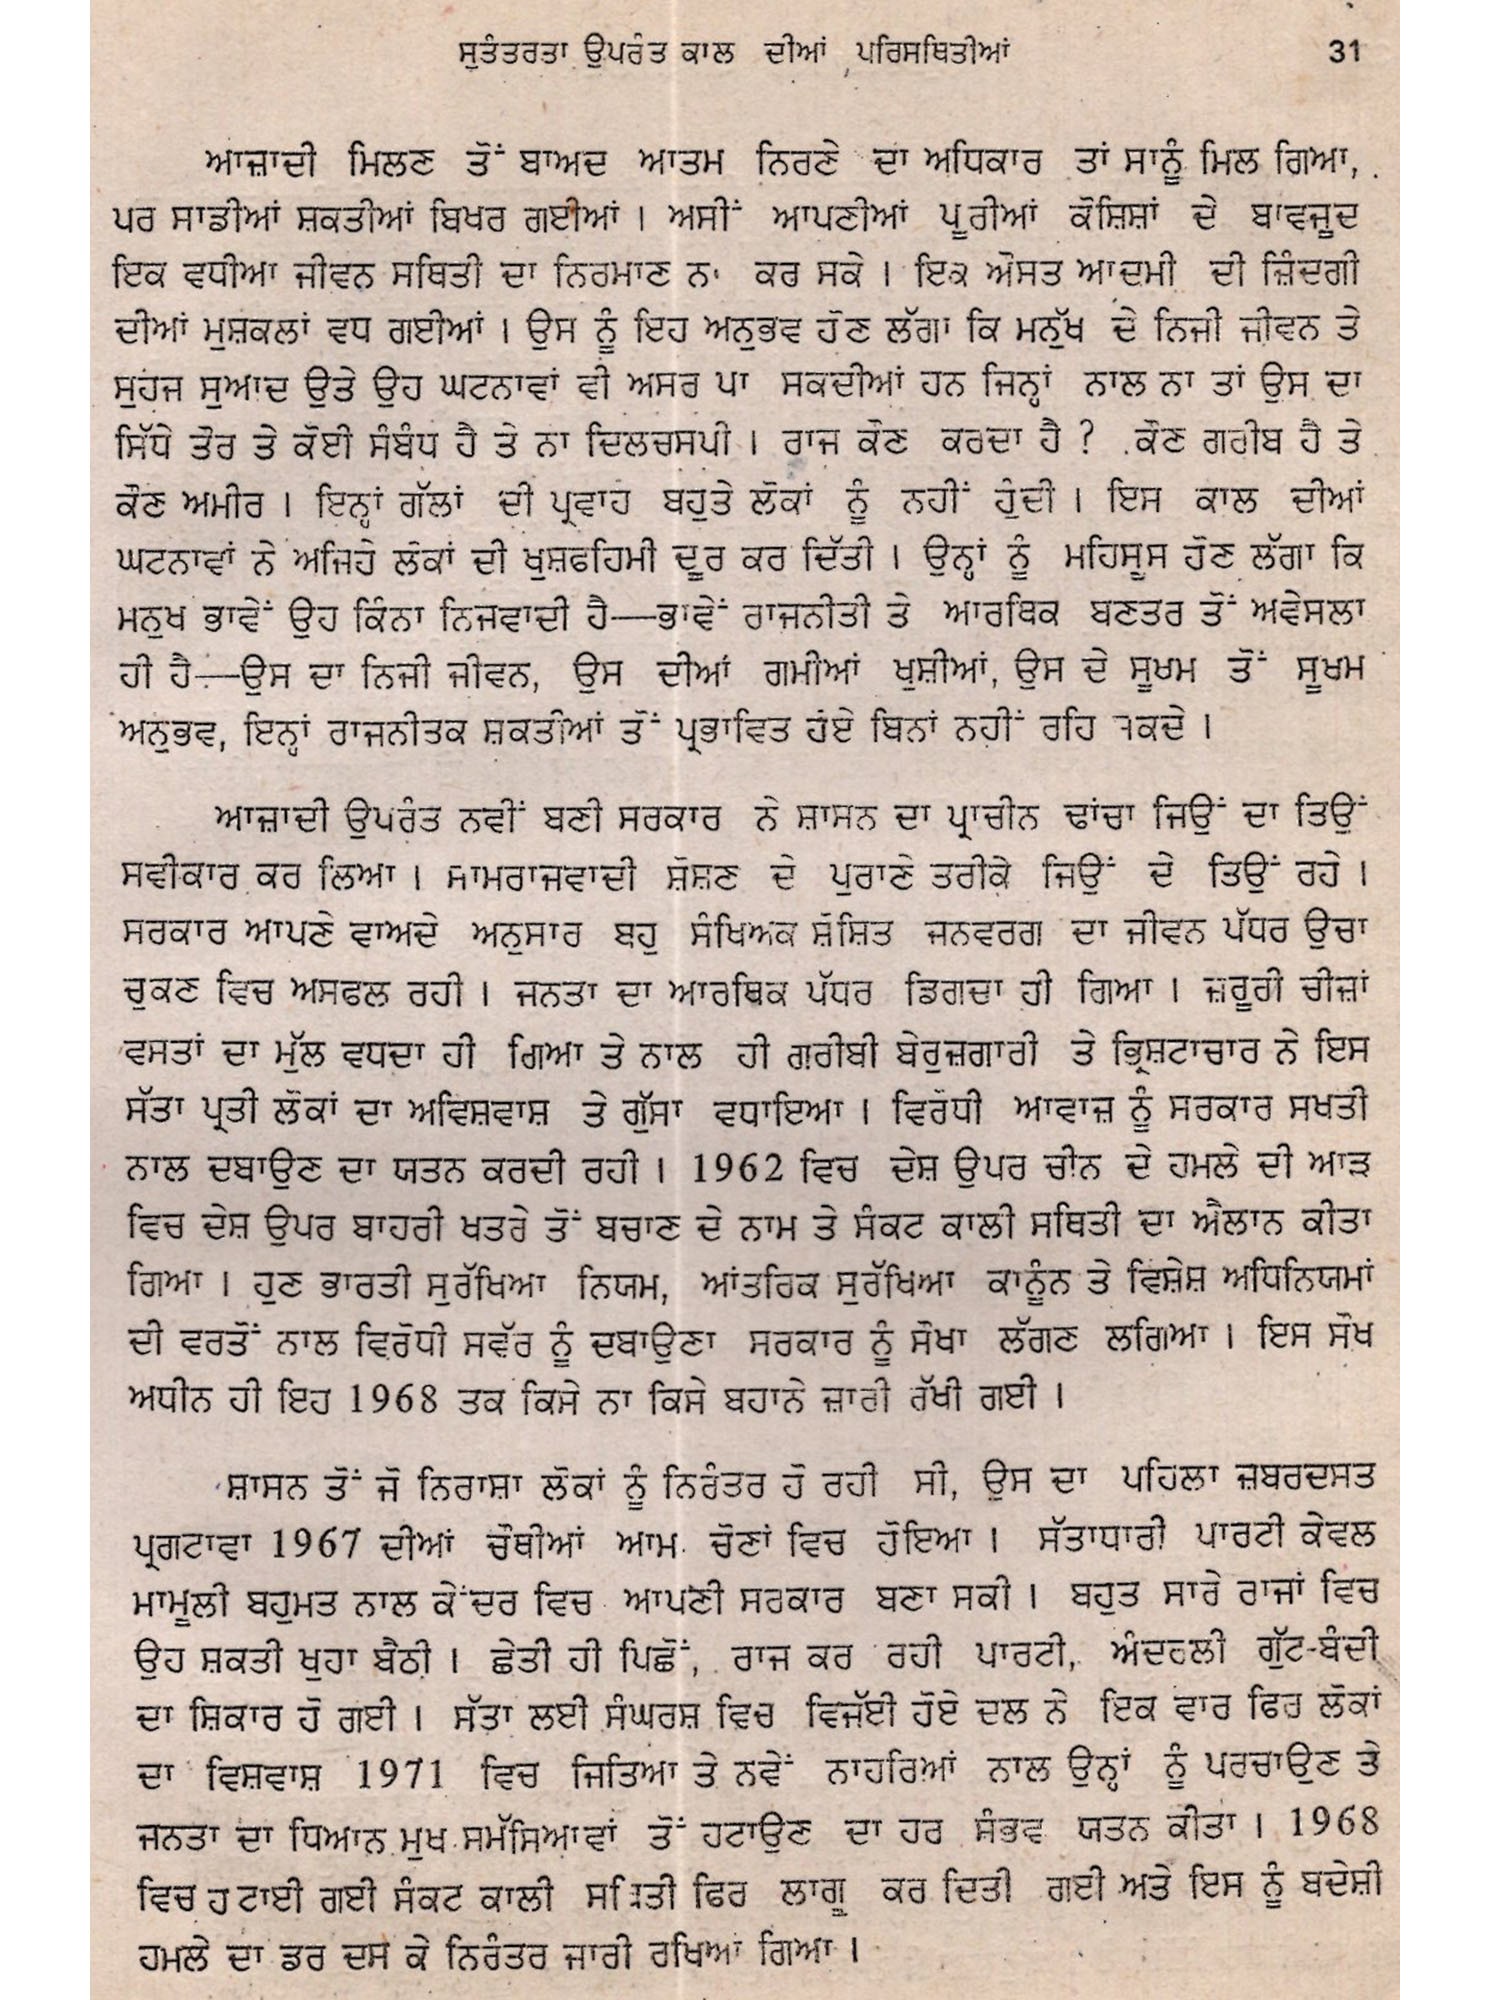 ਸੁਤੰਤਰਤਾ ਉਪਰੰਤ ਕਾਲ ਦੀਆਂ ਪਰਿਸਥਿਤੀਆਂ 31
ਆਜ਼ਾਦੀ ਮਿਲਣ ਤੋਂ ਬਾਅਦ ਆਤਮ ਨਿਰਣੇ ਦਾ ਅਧਿਕਾਰ ਤਾਂ ਸਾਨੂੰ ਮਿਲ ਗਿਆ,
ਪਰ ਸਾਡੀਆਂ ਸ਼ਕਤੀਆਂ ਬਿਖਰ ਗਈਆਂ । ਅਸੀਂ ਆਪਣੀਆਂ ਪੂਰੀਆਂ ਕੋਸ਼ਿਸ਼ਾਂ ਦੇ ਬਾਵਜੂਦ
ਇਕ ਵਧੀਆ ਜੀਵਨ ਸਥਿਤੀ ਦਾ ਨਿਰਮਾਣ ਨਾ ਕਰ ਸਕੇ । ਇਕ ਔਸਤ ਆਦਮੀ ਦੀ ਜ਼ਿੰਦਗੀ
ਦੀਆਂ ਮੁਸ਼ਕਲਾਂ ਵਧ ਗਈਆਂ । ਉਸ ਨੂੰ ਇਹ ਅਨੁਭਵ ਹੋਣ ਲੱਗਾ ਕਿ ਮਨੁੱਖ ਦੇ ਨਿਜੀ ਜੀਵਨ ਤੇ
ਸੁਹਜ ਸੁਆਦ ਉਤੇ ਉਹ ਘਟਨਾਵਾਂ ਵੀ ਅਸਰ ਪਾ ਸਕਦੀਆਂ ਹਨ ਜਿਨ੍ਹਾਂ ਨਾਲ ਨਾ ਤਾਂ ਉਸ ਦਾ
ਸਿੱਧੇ ਤੌਰ ਤੇ ਕੋਈ ਸੰਬੰਧ ਹੈ ਤੇ ਨਾ ਦਿਲਚਸਪੀ । ਰਾਜ ਕੌਣ ਕਰਦਾ ਹੈ ? ਕੌਣ ਗਰੀਬ ਹੈ ਤੇ
ਕੌਣ ਅਮੀਰ । ਇਨ੍ਹਾਂ ਗੱਲਾਂ ਦੀ ਪ੍ਰਵਾਹ ਬਹੁਤੇ ਲੋਕਾਂ ਨੂੰ ਨਹੀਂ ਹੁੰਦੀ । ਇਸ ਕਾਲ ਦੀਆਂ
ਘਟਨਾਵਾਂ ਨੇ ਅਜਿਹੇ ਲੋਕਾਂ ਦੀ ਖੁਸ਼ਫਹਿਮੀ ਦੂਰ ਕਰ ਦਿੱਤੀ । ਉਨ੍ਹਾਂ ਨੂੰ ਮਹਿਸੂਸ ਹੋਣ ਲੱਗਾ ਕਿ
ਮਨੁਖ ਭਾਵੇਂ ਉਹ ਕਿੰਨਾ ਨਿਜਵਾਦੀ ਹੈ—ਭਾਵੇਂ ਰਾਜਨੀਤੀ ਤੇ ਆਰਥਿਕ ਬਣਤਰ ਤੋਂ ਅਵੇਸਲਾ
ਹੀ ਹੈ—ਉਸ ਦਾ ਨਿਜੀ ਜੀਵਨ, ਉਸ ਦੀਆਂ ਗਮੀਆਂ ਖੁਸ਼ੀਆਂ, ਉਸ ਦੇ ਸੂਖਮ ਤੋਂ ਸੂਖਮ
ਅਨੁਭਵ, ਇਨ੍ਹਾਂ ਰਾਜਨੀਤਕ ਸ਼ਕਤੀਆਂ ਤੋਂ ਪ੍ਰਭਾਵਿਤ ਹੋਏ ਬਿਨਾਂ ਨਹੀਂ ਰਹਿ ਸਕਦੇ ।
ਆਜ਼ਾਦੀ ਉਪਰੰਤ ਨਵੀਂ ਬਣੀ ਸਰਕਾਰ ਨੇ ਸ਼ਾਸਨ ਦਾ ਪ੍ਰਾਚੀਨ ਢਾਂਚਾ ਜਿਉਂ ਦਾ ਤਿਉਂ
ਸਵੀਕਾਰ ਕਰ ਲਿਆ । ਸਾਮਰਾਜਵਾਦੀ ਸ਼ੋਸ਼ਣ ਦੇ ਪੁਰਾਣੇ ਤਰੀਕੇ ਜਿਉਂ ਦੇ ਤਿਉਂ ਰਹੇ ।
ਸਰਕਾਰ ਆਪਣੇ ਵਾਅਦੇ ਅਨੁਸਾਰ ਬਹੁ ਸੰਖਿਅਕ ਸ਼ੋਸ਼ਿਤ ਜਨਵਰਗ ਦਾ ਜੀਵਨ ਪੱਧਰ ਉਚਾ
ਚੁਕਣ ਵਿਚ ਅਸਫਲ ਰਹੀ । ਜਨਤਾ ਦਾ ਆਰਥਿਕ ਪੱਧਰ ਡਿਗਦਾ ਹੀ ਗਿਆ । ਜ਼ਰੂਰੀ ਚੀਜ਼ਾਂ
ਵਸਤਾਂ ਦਾ ਮੁੱਲ ਵਧਦਾ ਹੀ ਗਿਆ ਤੇ ਨਾਲ ਹੀ ਗਰੀਬੀ ਬੇਰੁਜ਼ਗਾਰੀ ਤੇ ਭ੍ਰਿਸ਼ਟਾਚਾਰ ਨੇ ਇਸ
ਸੱਤਾ ਪ੍ਰਤੀ ਲੋਕਾਂ ਦਾ ਅਵਿਸ਼ਵਾਸ਼ ਤੇ ਗੁੱਸਾ ਵਧਾਇਆ । ਵਿਰੋਧੀ ਆਵਾਜ਼ ਨੂੰ ਸਰਕਾਰ ਸਖਤੀ
ਨਾਲ ਦਬਾਉਣ ਦਾ ਯਤਨ ਕਰਦੀ ਰਹੀ । 1962 ਵਿਚ ਦੇਸ਼ ਉਪਰ ਚੀਨ ਦੇ ਹਮਲੇ ਦੀ ਆੜ
ਵਿਚ ਦੇਸ਼ ਉਪਰ ਬਾਹਰੀ ਖਤਰੇ ਤੋਂ ਬਚਾਣ ਦੇ ਨਾਮ ਤੇ ਸੰਕਟ ਕਾਲੀ ਸਥਿਤੀ ਦਾ ਐਲਾਨ ਕੀਤਾ
ਗਿਆ । ਹੁਣ ਭਾਰਤੀ ਸੁਰੱਖਿਆ ਨਿਯਮ, ਆਂਤਰਿਕ ਸੁਰੱਖਿਆ ਕਾਨੂੰਨ ਤੇ ਵਿਸ਼ੇਸ਼ ਅਧਿਨਿਯਮਾਂ
ਦੀ ਵਰਤੋਂ ਨਾਲ ਵਿਰੋਧੀ ਸਵੱਰ ਨੂੰ ਦਬਾਉਣਾ ਸਰਕਾਰ ਨੂੰ ਸੌਖਾ ਲੱਗਣ ਲਗਿਆ । ਇਸ ਸੌਖ
ਅਧੀਨ ਹੀ ਇਹ 1968 ਤਕ ਕਿਸੇ ਨਾ ਕਿਸੇ ਬਹਾਨੇ ਜ਼ਾਰੀ ਰੱਖੀ ਗਈ ।
ਸ਼ਾਸਨ ਤੋਂ ਜੋ ਨਿਰਾਸ਼ਾ ਲੋਕਾਂ ਨੂੰ ਨਿਰੰਤਰ ਹੋ ਰਹੀ ਸੀ, ਉਸ ਦਾ ਪਹਿਲਾ ਜ਼ਬਰਦਸਤ
ਪ੍ਰਗਟਾਵਾ 1967 ਦੀਆਂ ਚੌਥੀਆਂ ਆਮ ਚੋਣਾਂ ਵਿਚ ਹੋਇਆ । ਸੱਤਾਧਾਰੀ ਪਾਰਟੀ ਕੇਵਲ
ਮਾਮੂਲੀ ਬਹੁਮਤ ਨਾਲ ਕੇਂਦਰ ਵਿਚ ਆਪਣੀ ਸਰਕਾਰ ਬਣਾ ਸਕੀ । ਬਹੁਤ ਸਾਰੇ ਰਾਜਾਂ ਵਿਚ
ਉਹ ਸ਼ਕਤੀ ਖੁਹਾ ਬੈਠੀ । ਛੇਤੀ ਹੀ ਪਿਛੋਂ, ਰਾਜ ਕਰ ਰਹੀ ਪਾਰਟੀ, ਅੰਦਰਲੀ ਗੁੱਟ-ਬੰਦੀ
ਦਾ ਸ਼ਿਕਾਰ ਹੋ ਗਈ । ਸੱਤਾ ਲਈ ਸੰਘਰਸ਼ ਵਿਚ ਵਿਜੱਈ ਹੋਏ ਦਲ ਨੇ ਇਕ ਵਾਰ ਫਿਰ ਲੋਕਾਂ
ਦਾ ਵਿਸ਼ਵਾਸ਼ 1971 ਵਿਚ ਜਿਤਿਆ ਤੇ ਨਵੇਂ ਨਾਹਰਿਆਂ ਨਾਲ ਉਨ੍ਹਾਂ ਨੂੰ ਪਰਚਾਉਣ ਤੇ
ਜਨਤਾ ਦਾ ਧਿਆਨ ਮੁਖ ਸਮੱਸਿਆਵਾਂ ਤੋਂ ਹਟਾਉਣ ਦਾ ਹਰ ਸੰਭਵ ਯਤਨ ਕੀਤਾ । 1968
ਵਿਚ ਹਟਾਈ ਗਈ ਸੰਕਟ ਕਾਲੀ ਸਥਿਤੀ ਫਿਰ ਲਾਗੂ ਕਰ ਦਿਤੀ ਗਈ ਅਤੇ ਇਸ ਨੂੰ ਬਦੇਸ਼ੀ
ਹਮਲੇ ਦਾ ਡਰ ਦਸ ਕੇ ਨਿਰੰਤਰ ਜਾਰੀ ਰਖਿਆ ਗਿਆ ।